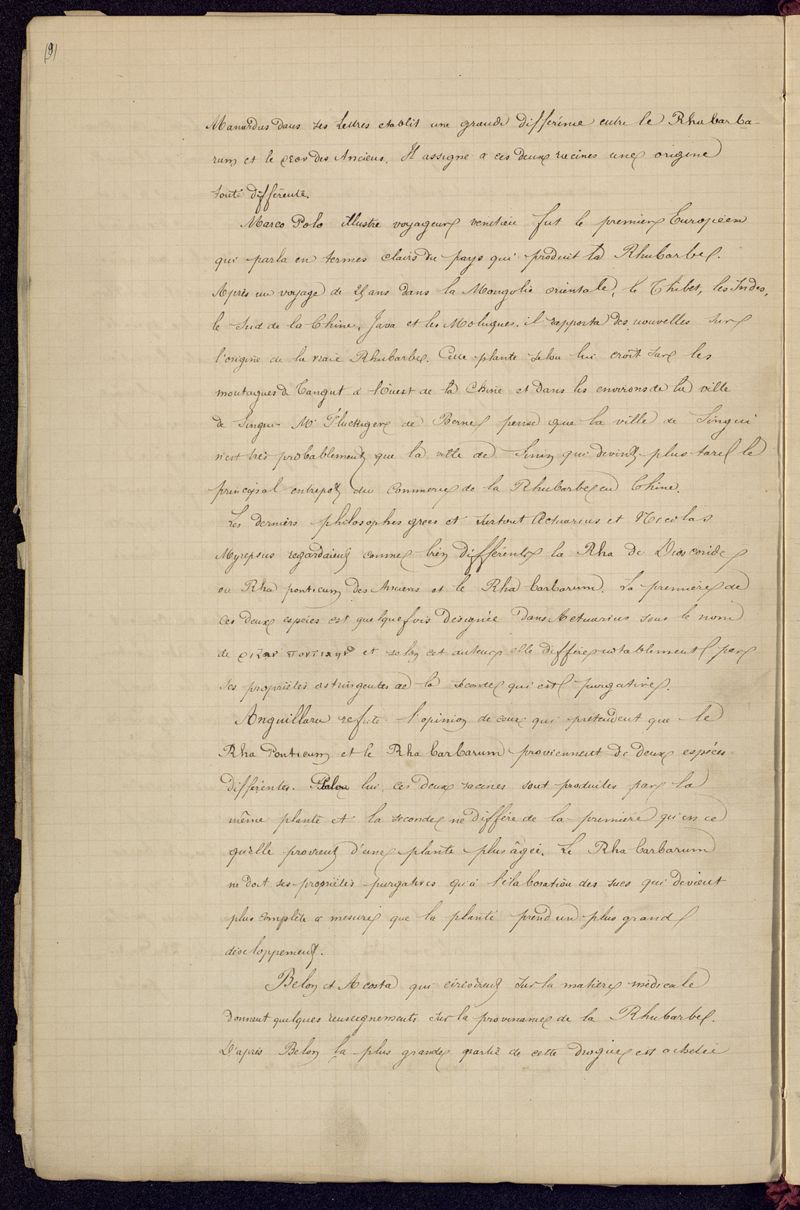 (9)
Manardus dans ses lettres etablit une grande différence entre le Rha barba-
rum et le ρεον des Anciens. Il assigne à ces deux racines une origine
toute différente.
Marco Polo illustre voyageur venetien fut le premier Européen
qui parla en termes clairs du pays qui produit la Rhubarbe.
Après un voyage de 25 ans dans la Mongolie orientale, le Thibet, les Indes,
le Sud de la Chine, Java et les Moluques, il rapporta des nouvelles sur
l'origine de la vraie Rhubarbe. Cette plante selon lui croît sur les
montagnes de Tangut à l'Ouest de la Chine et dans les environs de la ville
de Singui. Mr Fluckiger de Berne pense que la ville de Singui
n'est très probablement que la ville de Sinin qui devint plus tard le
principal entrepôt du commerce de la Rhubarbe en Chine.
Les derniers philosophes grecs et surtout Actuarius et Nicolas
Myrepsus regardaient comme bien différents la Rha de Dioscoride
ou Rha ponticum des Anciens et le Rha barbarum. La première de
ces deux espèces est quelquefois désignée dans Actuarius sous le nom
de et selon cet auteur elle diffère notablement par
ses propriétés astringentes de la seconde qui est purgative.
Anguillara refute l'opinion de ceux qui prétendent que le
Rha Ponticum et le Rha barbarum proviennent de deux espèces
différentes. Selon lui, ces deux racines sont produites par la
même plante et la seconde ne diffère de la première qu'en ce
qu'elle provient d'une plante plus âgée. Le Rha barbarum
ne doit ses propriétés purgatives qu'à l'élaboration des sucs qui devient
plus complète à mesure que la plante prend un plus grand
développement.
Belon et Acosta qui écrivirent sur la matière médicale
donnent quelques renseignements sur la provenance de la Rhubarbe.
D'après Belon la plus grande partie de cette drogue est achetée